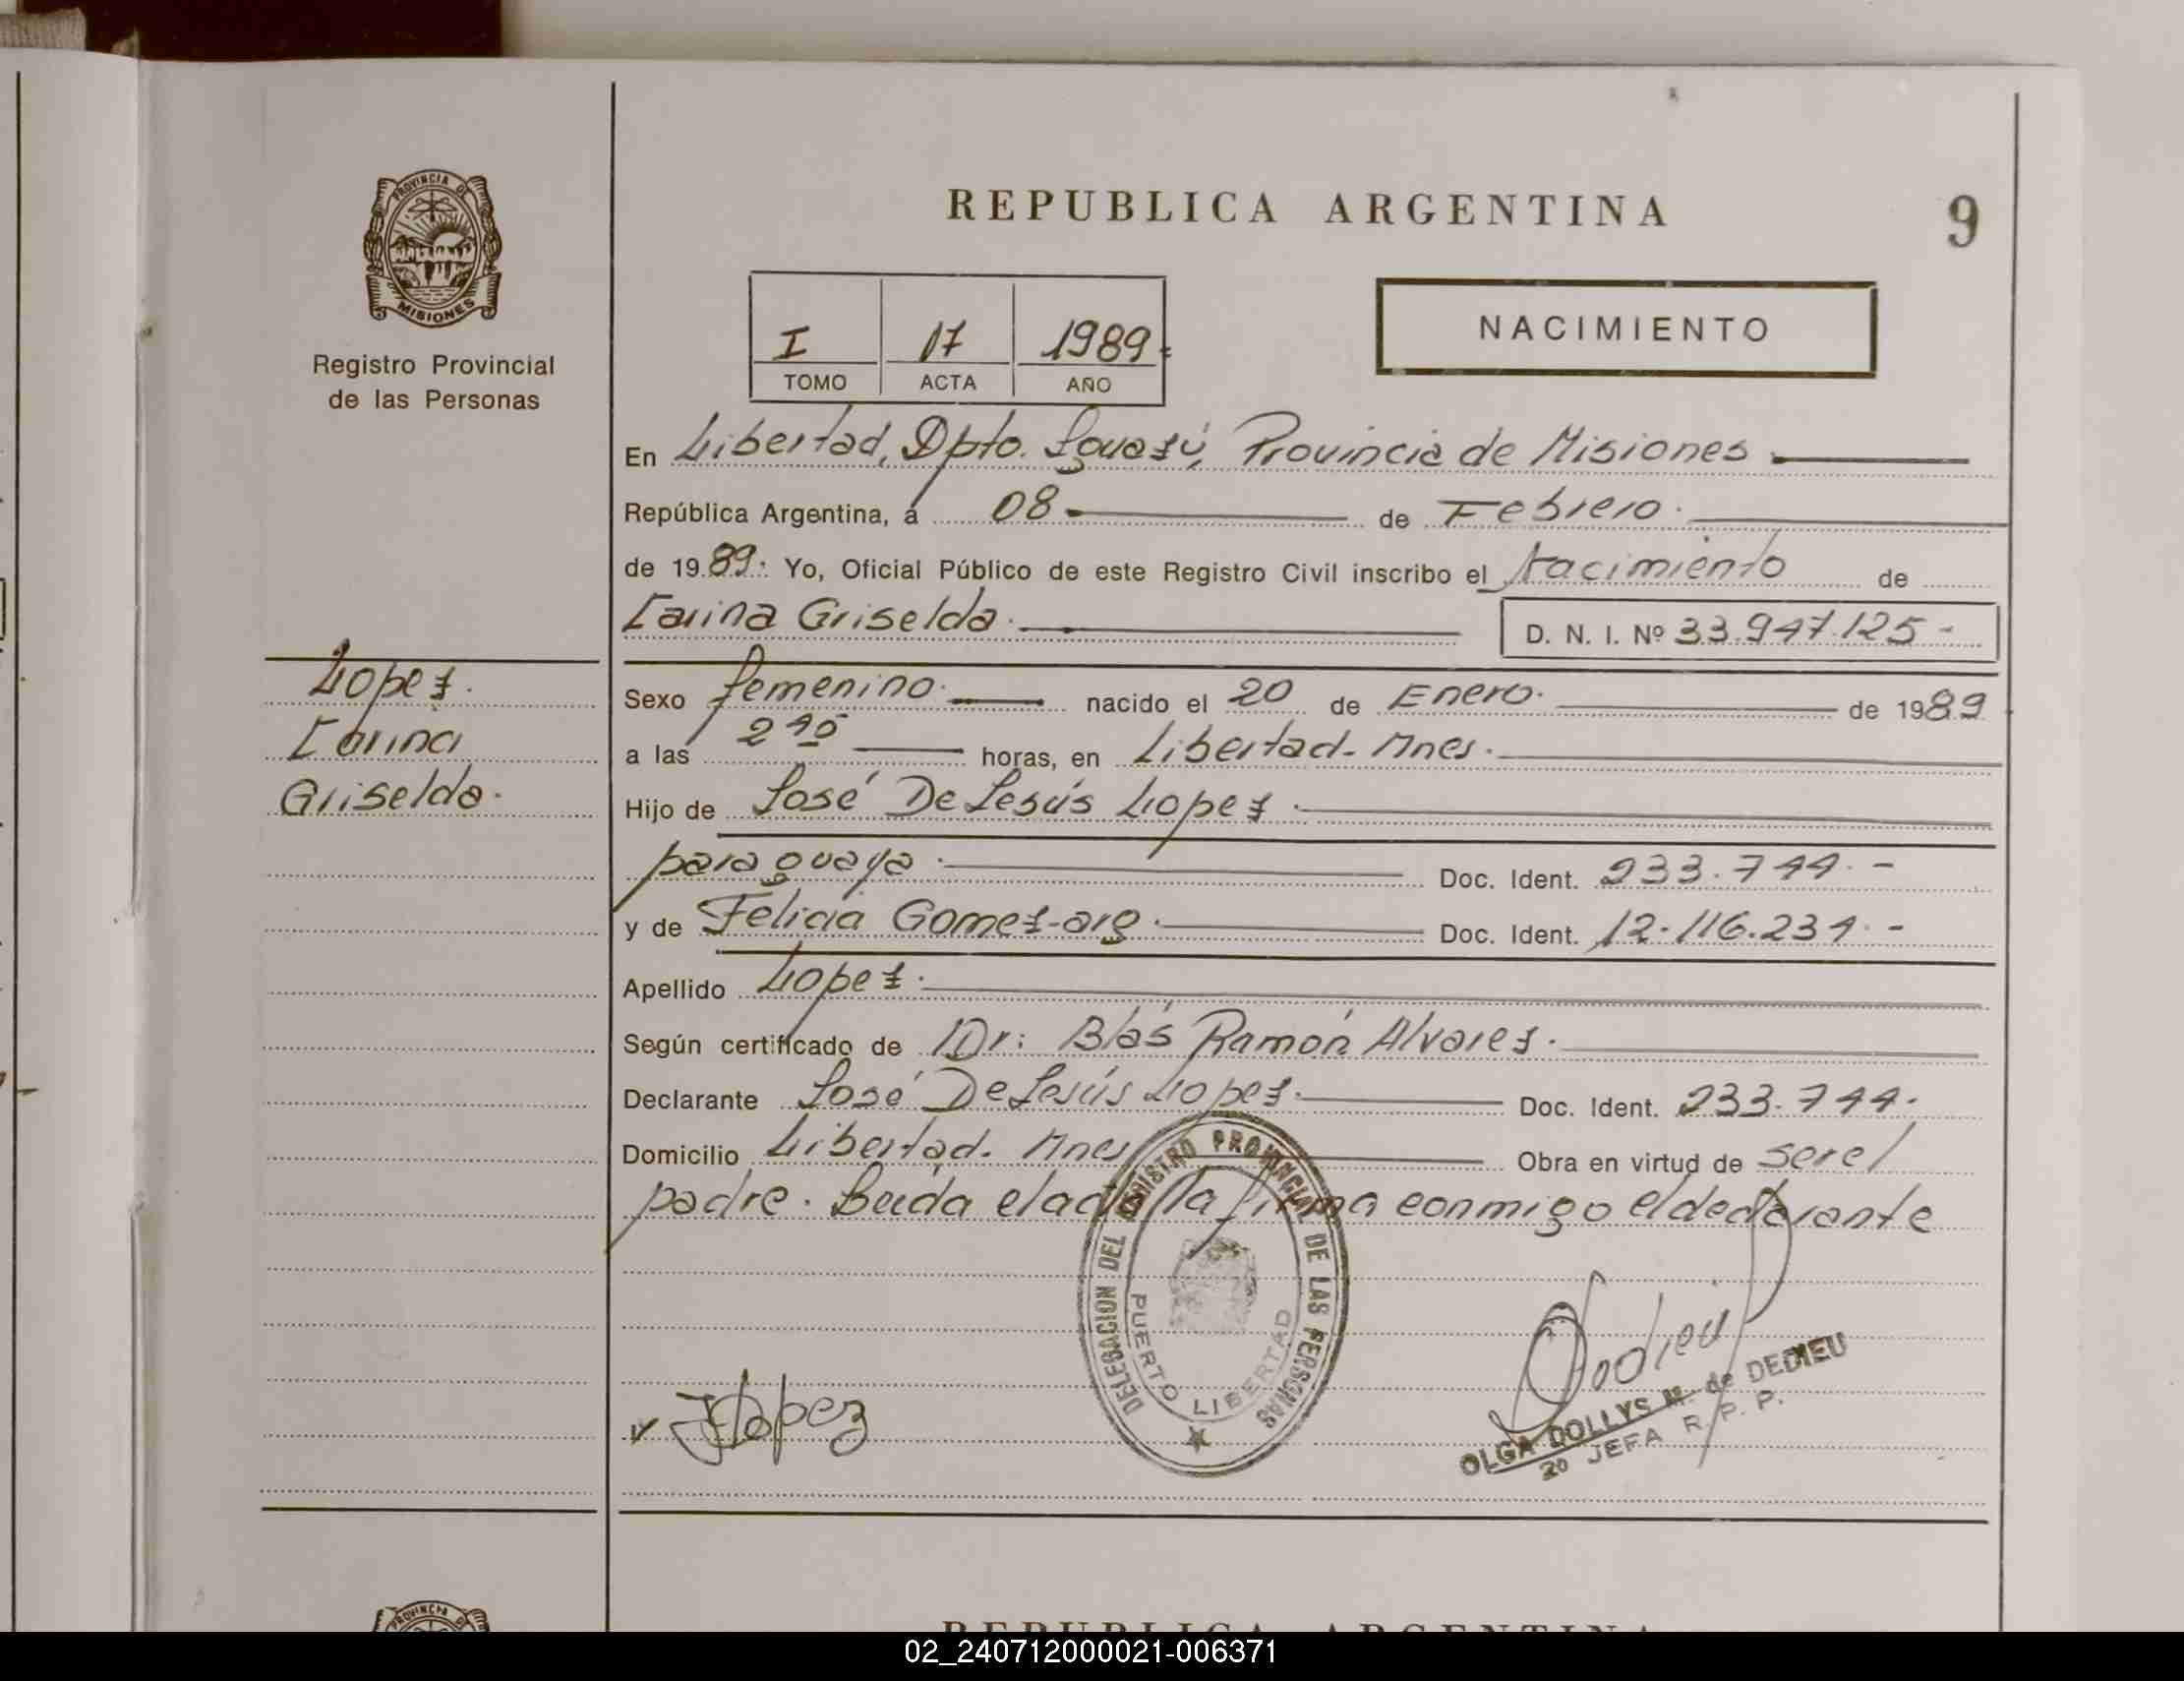 PROVINCIA DE
MISIONES
Registro Provincial
de las Personas
REPUBLICA ARGENTINA
9
I 17 1989
TOMO ACTA AÑO
NACIMIENTO
En Libertad, Dpto. Iguazú, Provincia de Misiones
República Argentina, a 08 de Febrero.
de 1989. Yo, Oficial Público de este Registro Civil inscribo el Nacimiento de
Carina Griselda. D. N. I. Nº 33.947.125-
Lopez.
Carina
Griselda.
Sexo femenino. nacido el 20 de Enero. de 1989
a las horas, en Libertad-Mnes.
Hijo de José De Jesús Lopez.
paraguaya. Doc. Ident. 233.744.-
y de Felicia Gomez-arg. Doc. Ident. 12.116.234.-
Apellido Lopez.
Según certificado de Dr: Blás Ramón Alvarez.
Declarante José De Jesús Lopez. Doc. Ident. 233.744.
Domicilio Libertad. Mnes Obra en virtud de ser el
padre. Leida el acta la firma conmigo el declarante
DELEGACION DEL REGISTRO PROVINCIAL DE LAS PERSONAS
PUERTO LIBERTAD
JLopez
Dedieu
OLGA DOLLYS M. de DEDIEU
2º JEFA R. P. P.
PROVINCIA DE
REPUBLICA ARGENTINA
02_240712000021-006371